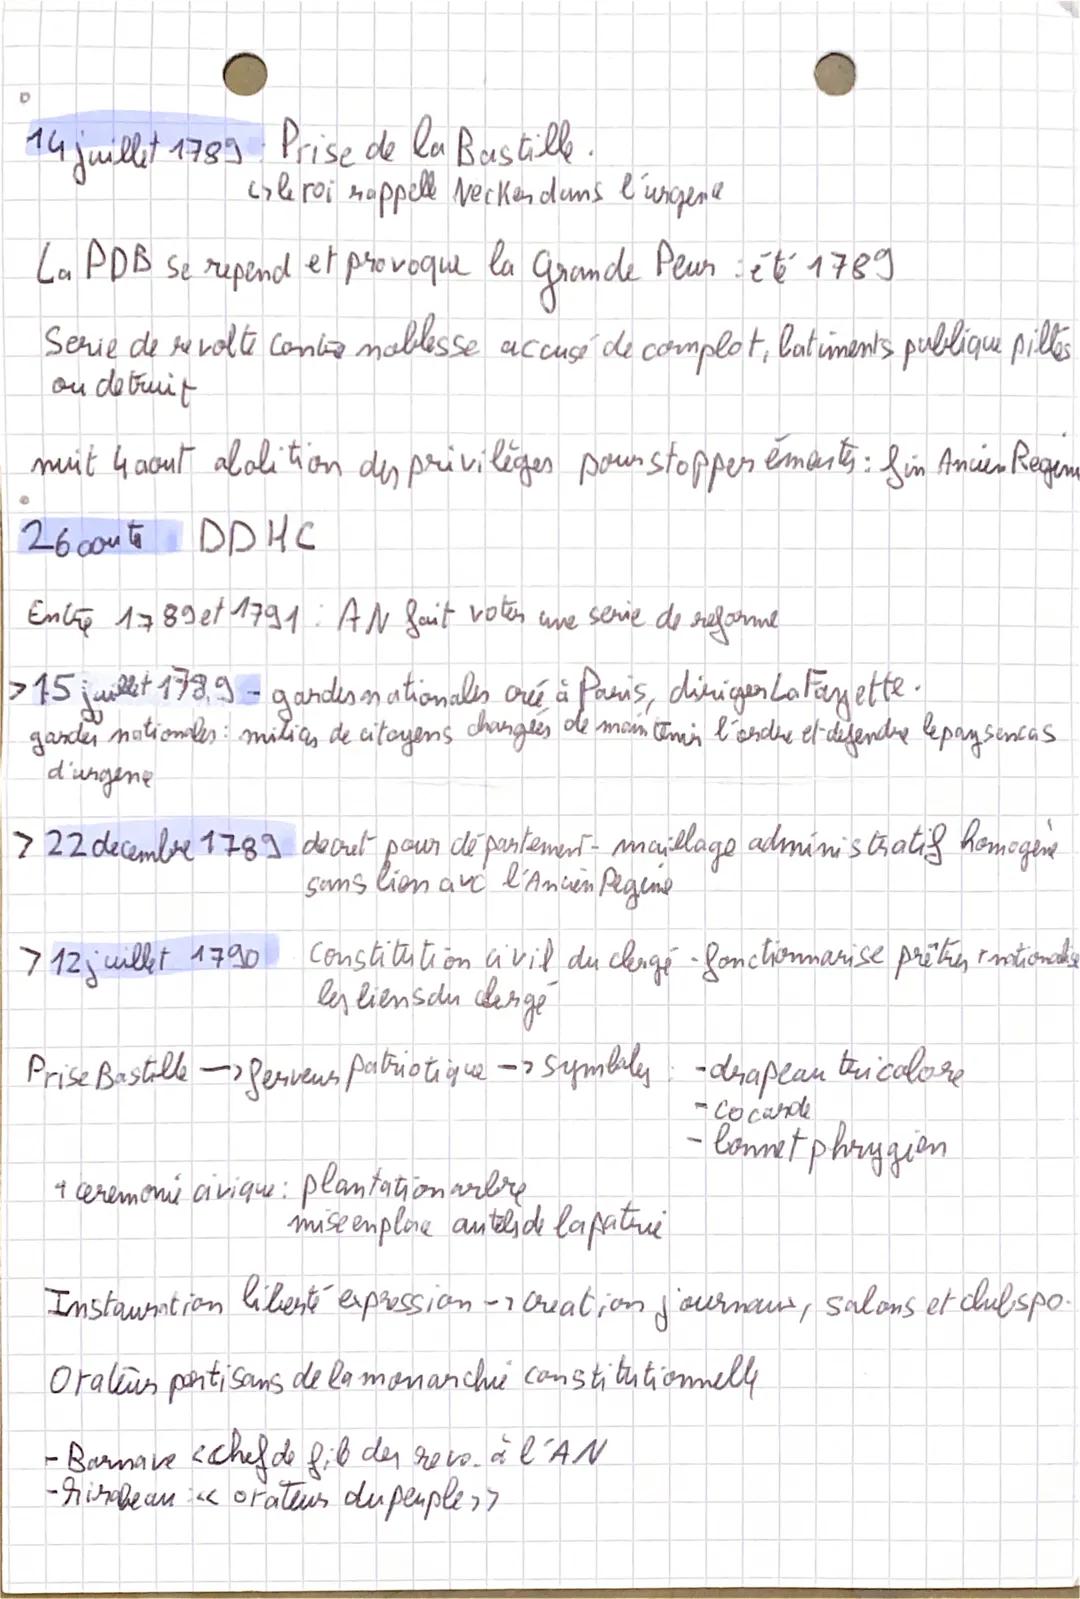 14 juillet 1789 : Prise de la Bastille.
↳ le roi rappelle Necker dans l'urgence
La PDB se repend et provoque la Grande Peur : été 1789
Serie de revolte contre noblesse accusé de complot, batiments publique pillés
ou detruit
nuit 4 aout abolition des privilèges pour stopper émeutes : fin Ancien Regime
26 aout DDHC
Entre 1789 et 1791 : AN fait voter une serie de reforme
> 15 juillet 1789 - gardes nationales créé à Paris, diriger La Fayette.
gardes nationales : milices de citoyens chargées de maintenir l'ordre et defendre le pays en cas
d'urgence
> 22 decembre 1789 decret pour département - maillage administratif homogène
sans lien avec l'Ancien Regime
> 12 juillet 1790 Constitution civil du clergé - fonctionnarise prêtres + nationalise
les biens du clergé
Prise Bastille → ferveur patriotique → symboles : - drapeau tricolore
- cocarde
- bonnet phrygien
+ ceremonie civique : plantation arbre
mise en place autels de la patrie
Instauration liberté expression → creation journaux, salons et club spo.
Orateurs partisans de la monarchie constitutionnelle
- Barnave < chef de file des revo. à l'AN
- Mirabeau : << orateur du peuple >>